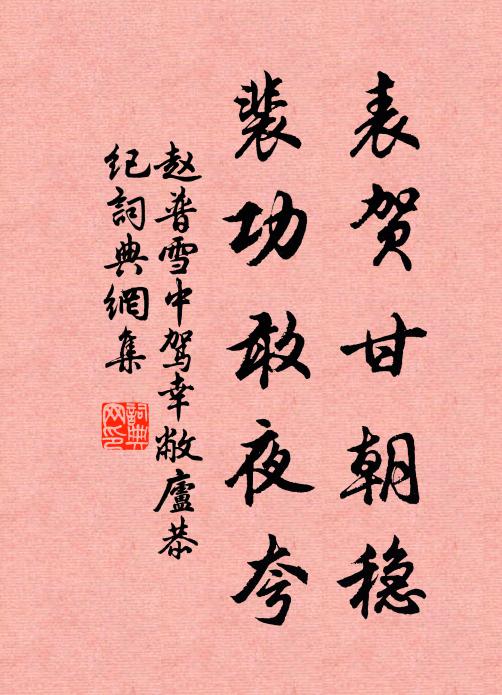 表贺甘朝稳
裴功敢夜夸
赵普雪中驾幸敝廬恭
纪詞典網集
詞典
网印